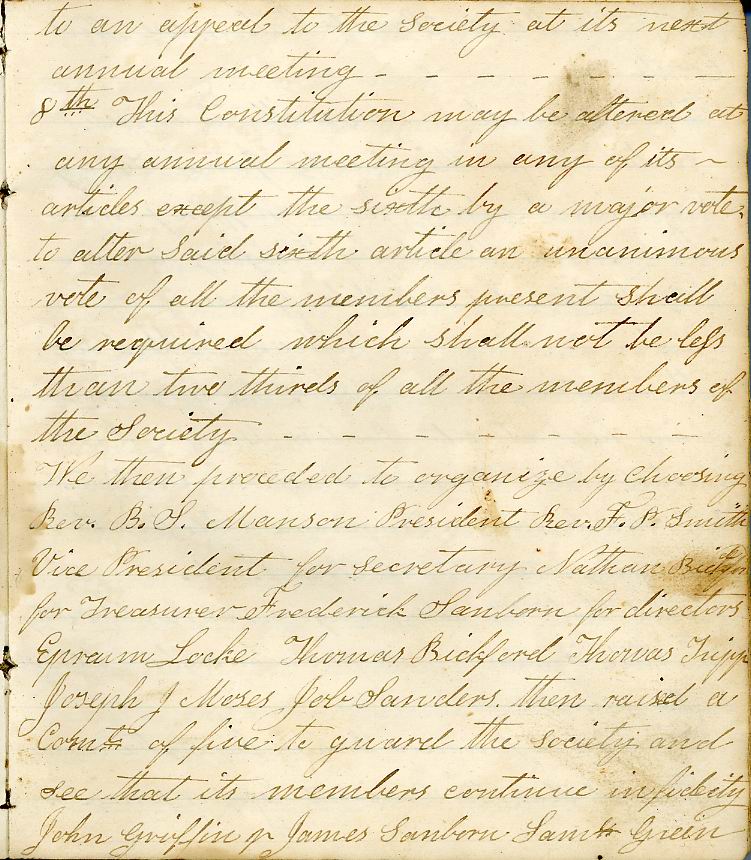 to an appeal to the Society at its next
annual meeting - - - - - - -
8th This Constitution may be altered at
any annual meeting in any of its ~
articles except the sixth by a major vote.
to alter said sixth article an unanimous
vote of all the members present shall
be required which shall not be less
than two thirds of all the members of
the Society - - - - - - -
We then proceded to organize by choosing
Rev. B. S. Manson President Rev. F. P. Smith
Vice President for secretary Nathan
for Treasurer Frederick Sanborn for directors
Epraim Locke Thomas Bickford Thomas Tripp
Joseph J Moses Job Sanders. then raised a
Comte of five to guard the society and
see that its members continue in fidelity
John Griffin jr James Sanborn Samll Green